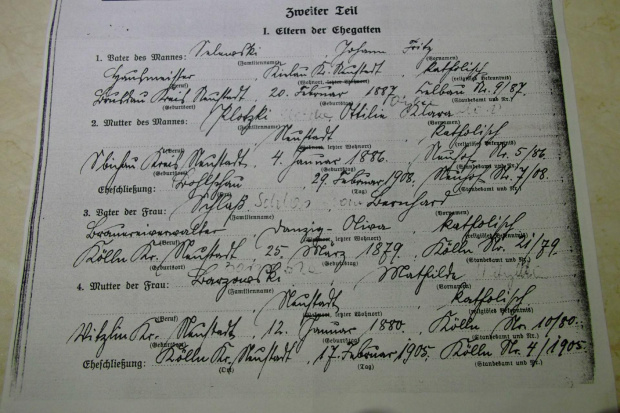 Zweiter Teil
I. Eltern der Ehegatten
1. Vater des Mannes: Selewski, Johann Fritz
(Familienname) (Vornamen)
Kielau Kr. Neustadt, katholisch
(Beruf) (Wohnort, letzter Wohnort) (religiöses Bekenntnis)
Kreis Neustadt, 20. Februar 1887, Nr. 9/87.
(Geburtsort) (Geburtstag) (Standesamt und Nr.)
2. Mutter des Mannes: Klotzki Ottilie Klara
(Familienname) (Vornamen)
Neustadt, katholisch
(Beruf) (Wohnort, letzter Wohnort) (religiöses Bekenntnis)
Kreis Neustadt, 4. Januar 1886. Nr. 5/86.
(Geburtsort) (Geburtstag) (Standesamt und Nr.)
Eheschließung: Bohlschau, 29. Februar 1908. Nr. 7/08.
(Ort) (Tag) (Standesamt und Nr.)
3. Vater der Frau: Schlaß Bernhard
(Familienname) (Vornamen)
Brauereiverwalter, Danzig-Oliva, katholisch
(Beruf) (Wohnort, letzter Wohnort) (religiöses Bekenntnis)
Kölln Kr. Neustadt, 25. März 1879. Kölln Nr. 21/79.
(Geburtsort) (Geburtstag) (Standesamt und Nr.)
4. Mutter der Frau: Barzowski, Mathilde
(Familienname) (Vornamen)
Neustadt, katholisch
(Beruf) (Wohnort, letzter Wohnort) (religiöses Bekenntnis)
Kr. Neustadt, 12. Januar 1880. Kölln Nr. 10/80.
(Geburtsort) (Geburtstag) (Standesamt und Nr.)
Eheschließung: Kölln Kr. Neustadt, 17. Februar 1905. Kölln Nr. 4/1905.
(Ort) (Tag) (Standesamt und Nr.)